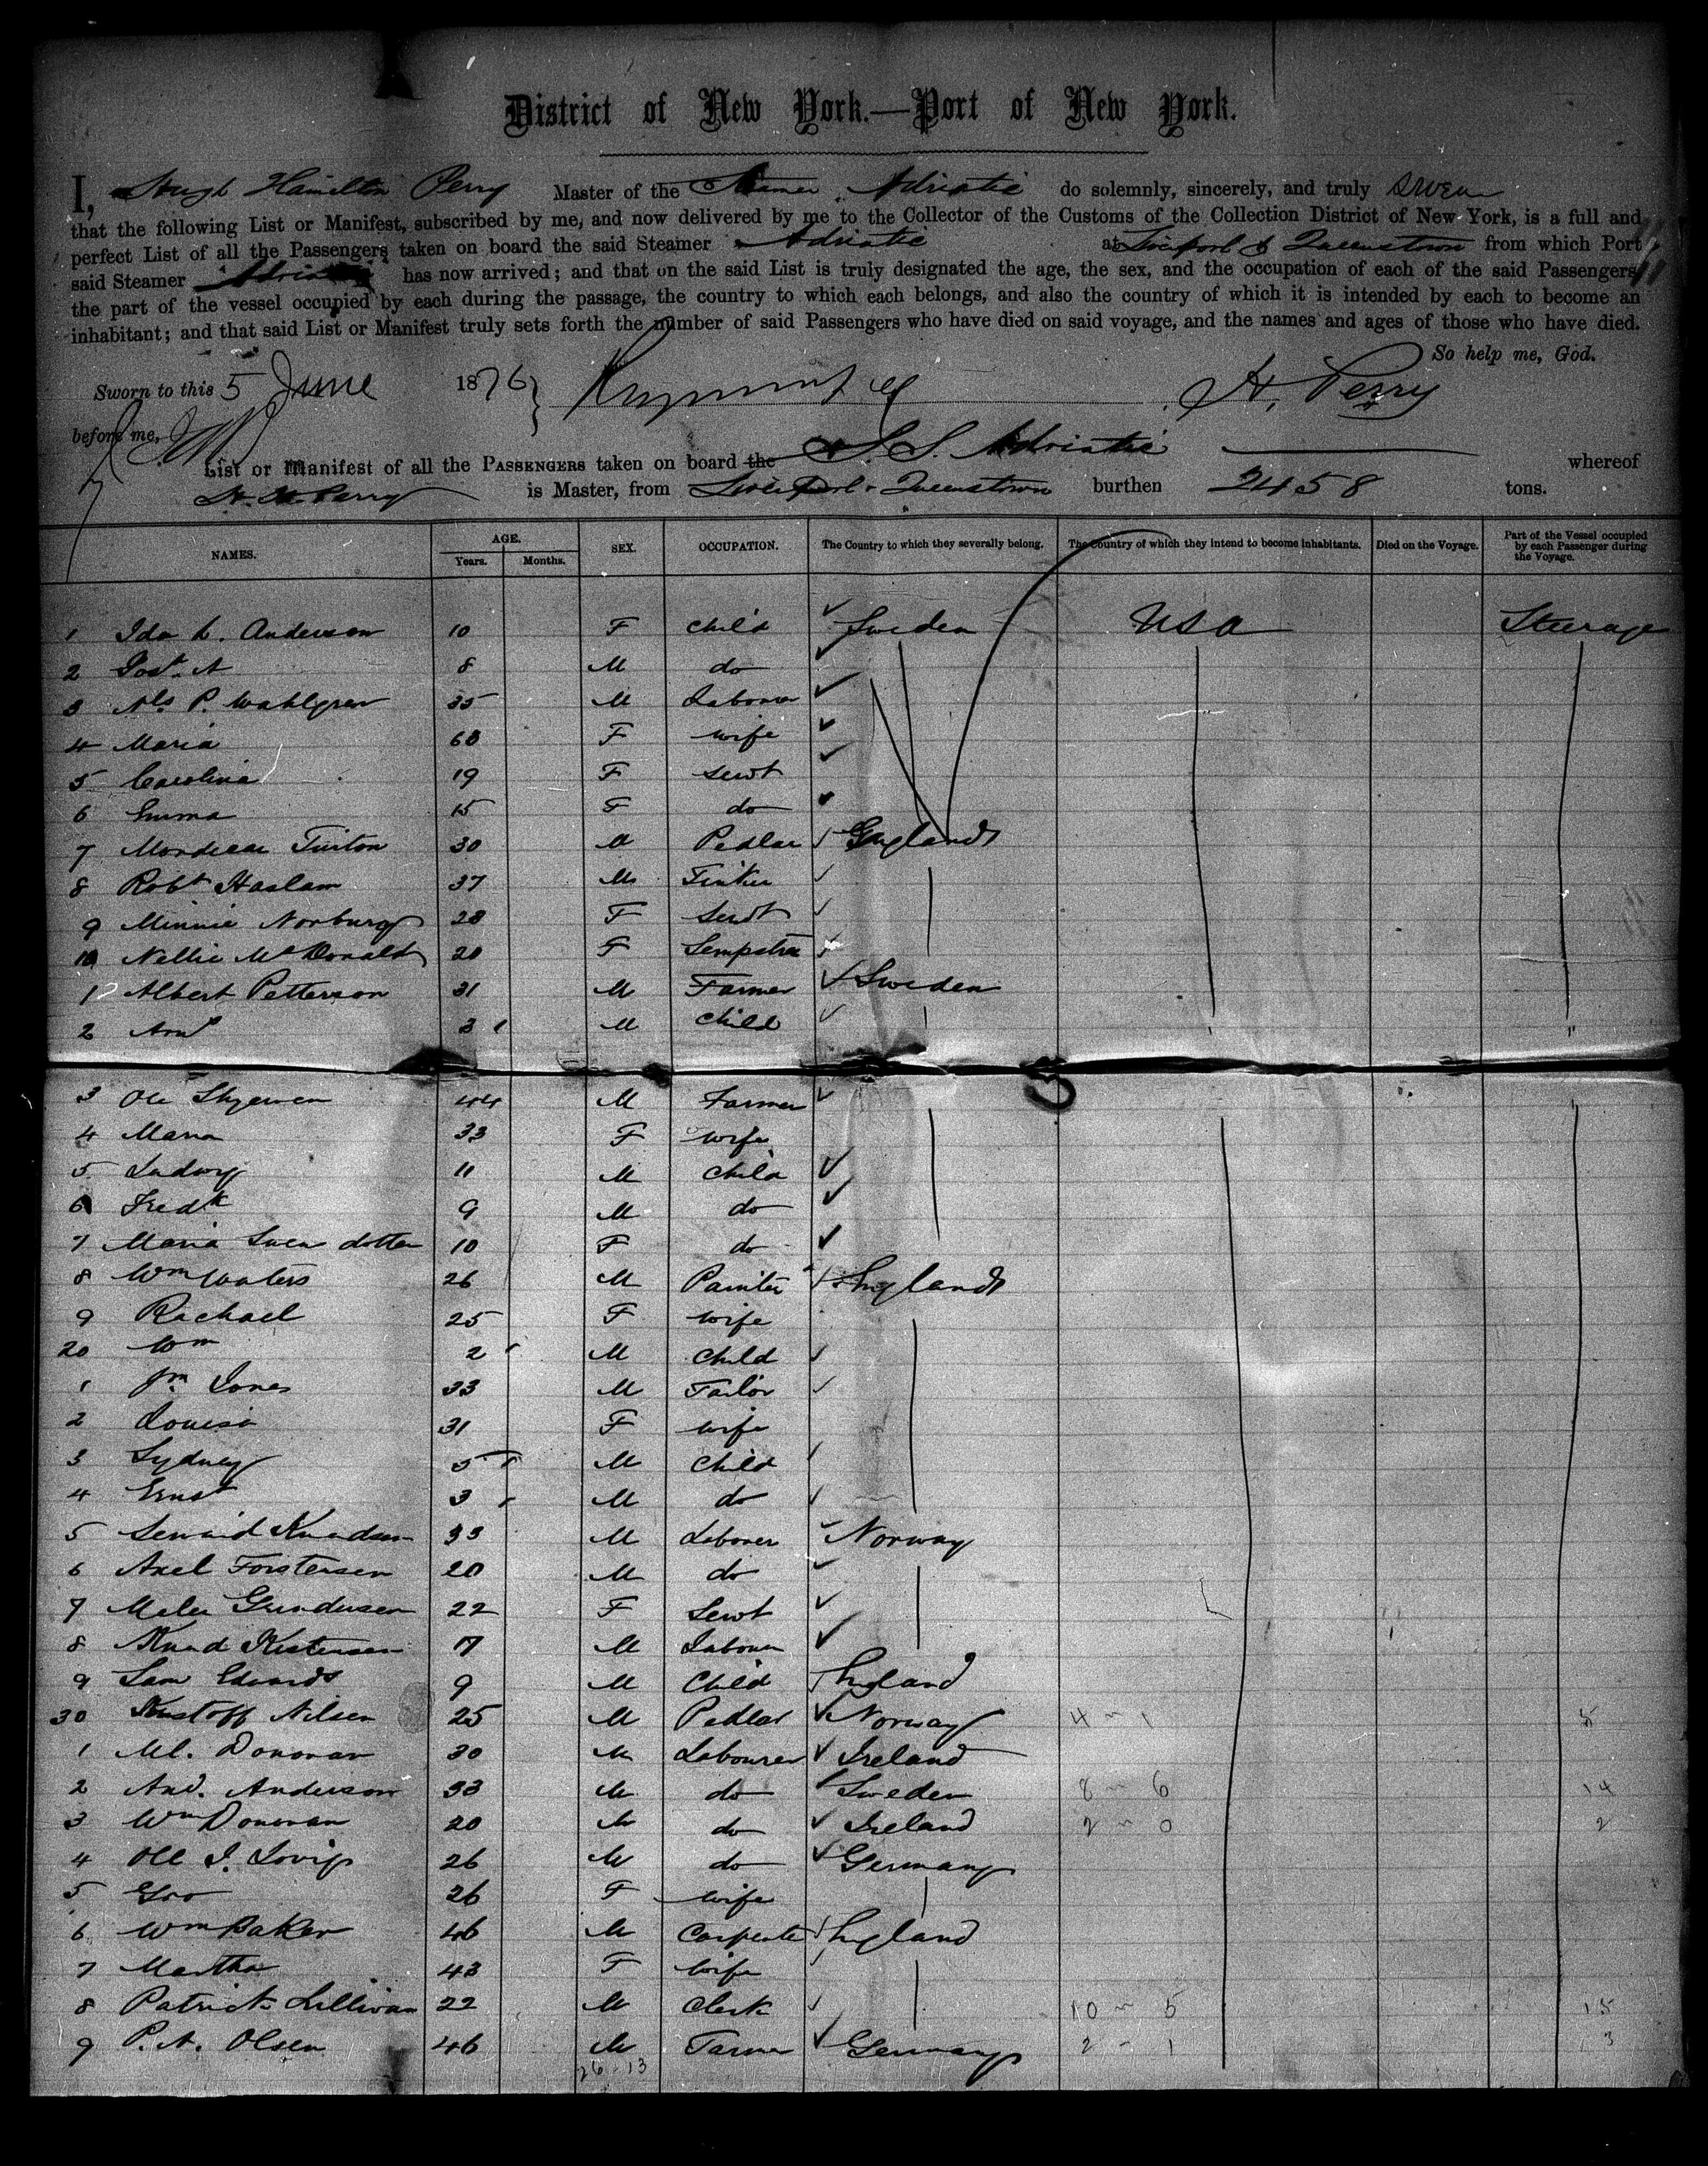 District of New York.—Port of New York.
I, Hugh Hamilton Perry Master of the Steamer Adriatic do solemnly, sincerely, and truly swear
that the following List or Manifest, subscribed by me, and now delivered by me to the Collector of the Customs of the Collection District of New York, is a full and
perfect List of all the Passengers taken on board the said Steamer Adriatic at Liverpool & Queenstown from which Port
said Steamer Adriatic has now arrived; and that on the said List is truly designated the age, the sex, and the occupation of each of the said Passengers,
the part of the vessel occupied by each during the passage, the country to which each belongs, and also the country of which it is intended by each to become an
inhabitant; and that said List or Manifest truly sets forth the number of said Passengers who have died on said voyage, and the names and ages of those who have died.
So help me, God.
Sworn to this 5 June 1876 H. Perry
before me,
List or Manifest of all the PASSENGERS taken on board the S. S. Adriatic whereof
H. H. Perry is Master, from Liverpool & Queenstown burthen 2458 tons.
NAMES. AGE. Years. Months. SEX. OCCUPATION. The Country to which they severally belong. The Country of which they intend to become inhabitants. Died on the Voyage. Part of the Vessel occupied by each Passenger during the Voyage.
1 Ida L. Anderson 10 F Child Sweden USA Steerage
2 A 8 M do
3 Nls P. Wahlgren 35 M Labourer
4 Maria 60 F wife
5 Carolina 19 F servt
6 Emma 15 F do
7 Mordecai Turton 30 M Pedlar England
8 Robt Haslam 37 M Tinker
9 Minnie Norbury 28 F Servt
10 Nellie McDonald 20 F Sempstre
1 Albert Petterson 31 M Farmer Sweden
2 3 M Child
3 Ole 44 M Farmer
4 Maria 33 F wife
5 Ludwig 11 M Child
6 Fredk 9 M do
7 Maria Swen dotter 10 F do
8 Wm Waters 26 M Painter England
9 Rachael 25 F wife
20 Wm 2 M Child
1 Jones 33 M Tailor
2 Louisa 31 F wife
3 Sydney 5 M Child
4 Ernst 3 M do
5 Knudsen 33 M Laborer Norway
6 Axel Forstensen 20 M do
7 Gundersen 22 F Servt
8 Knud Kistensen 17 M Labourer
9 Sam Edwards 9 M Child England
30 Kustoff Nilsen 25 M Pedlar Norway 4 – 1 5
1 Ml. Donovan 30 M Labourer Ireland
2 And. Anderson 33 M do Sweden 8 – 6 14
3 Wm Donovan 20 M do Ireland 2 – 0 2
4 Ole 26 M do Germany
5 26 F wife
6 Wm Baker 46 M Carpenter England
7 Martha 43 F wife
8 Patrick Sullivan 22 M Clerk 10 – 5 15
9 P. A. Olsen 46 M Farmer Germany 2 – 1 3
26 - 13